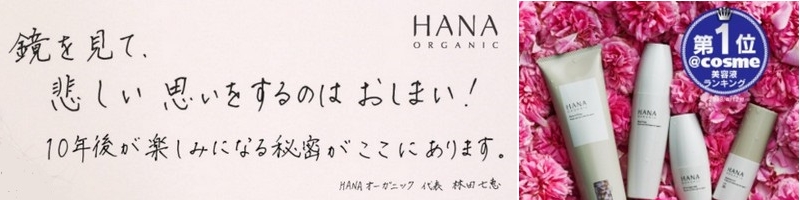 HANA
ORGANIC
鏡を見て、
悲しい思いをするのはおしまい！
10年後が楽しみになる秘密がここにあります。
HANAオーガニック 代表 林田七恵
第1位
@cosme
美容液
ランキング
HANA
ORGANIC
HANA
ORGANIC
HANA
HANA